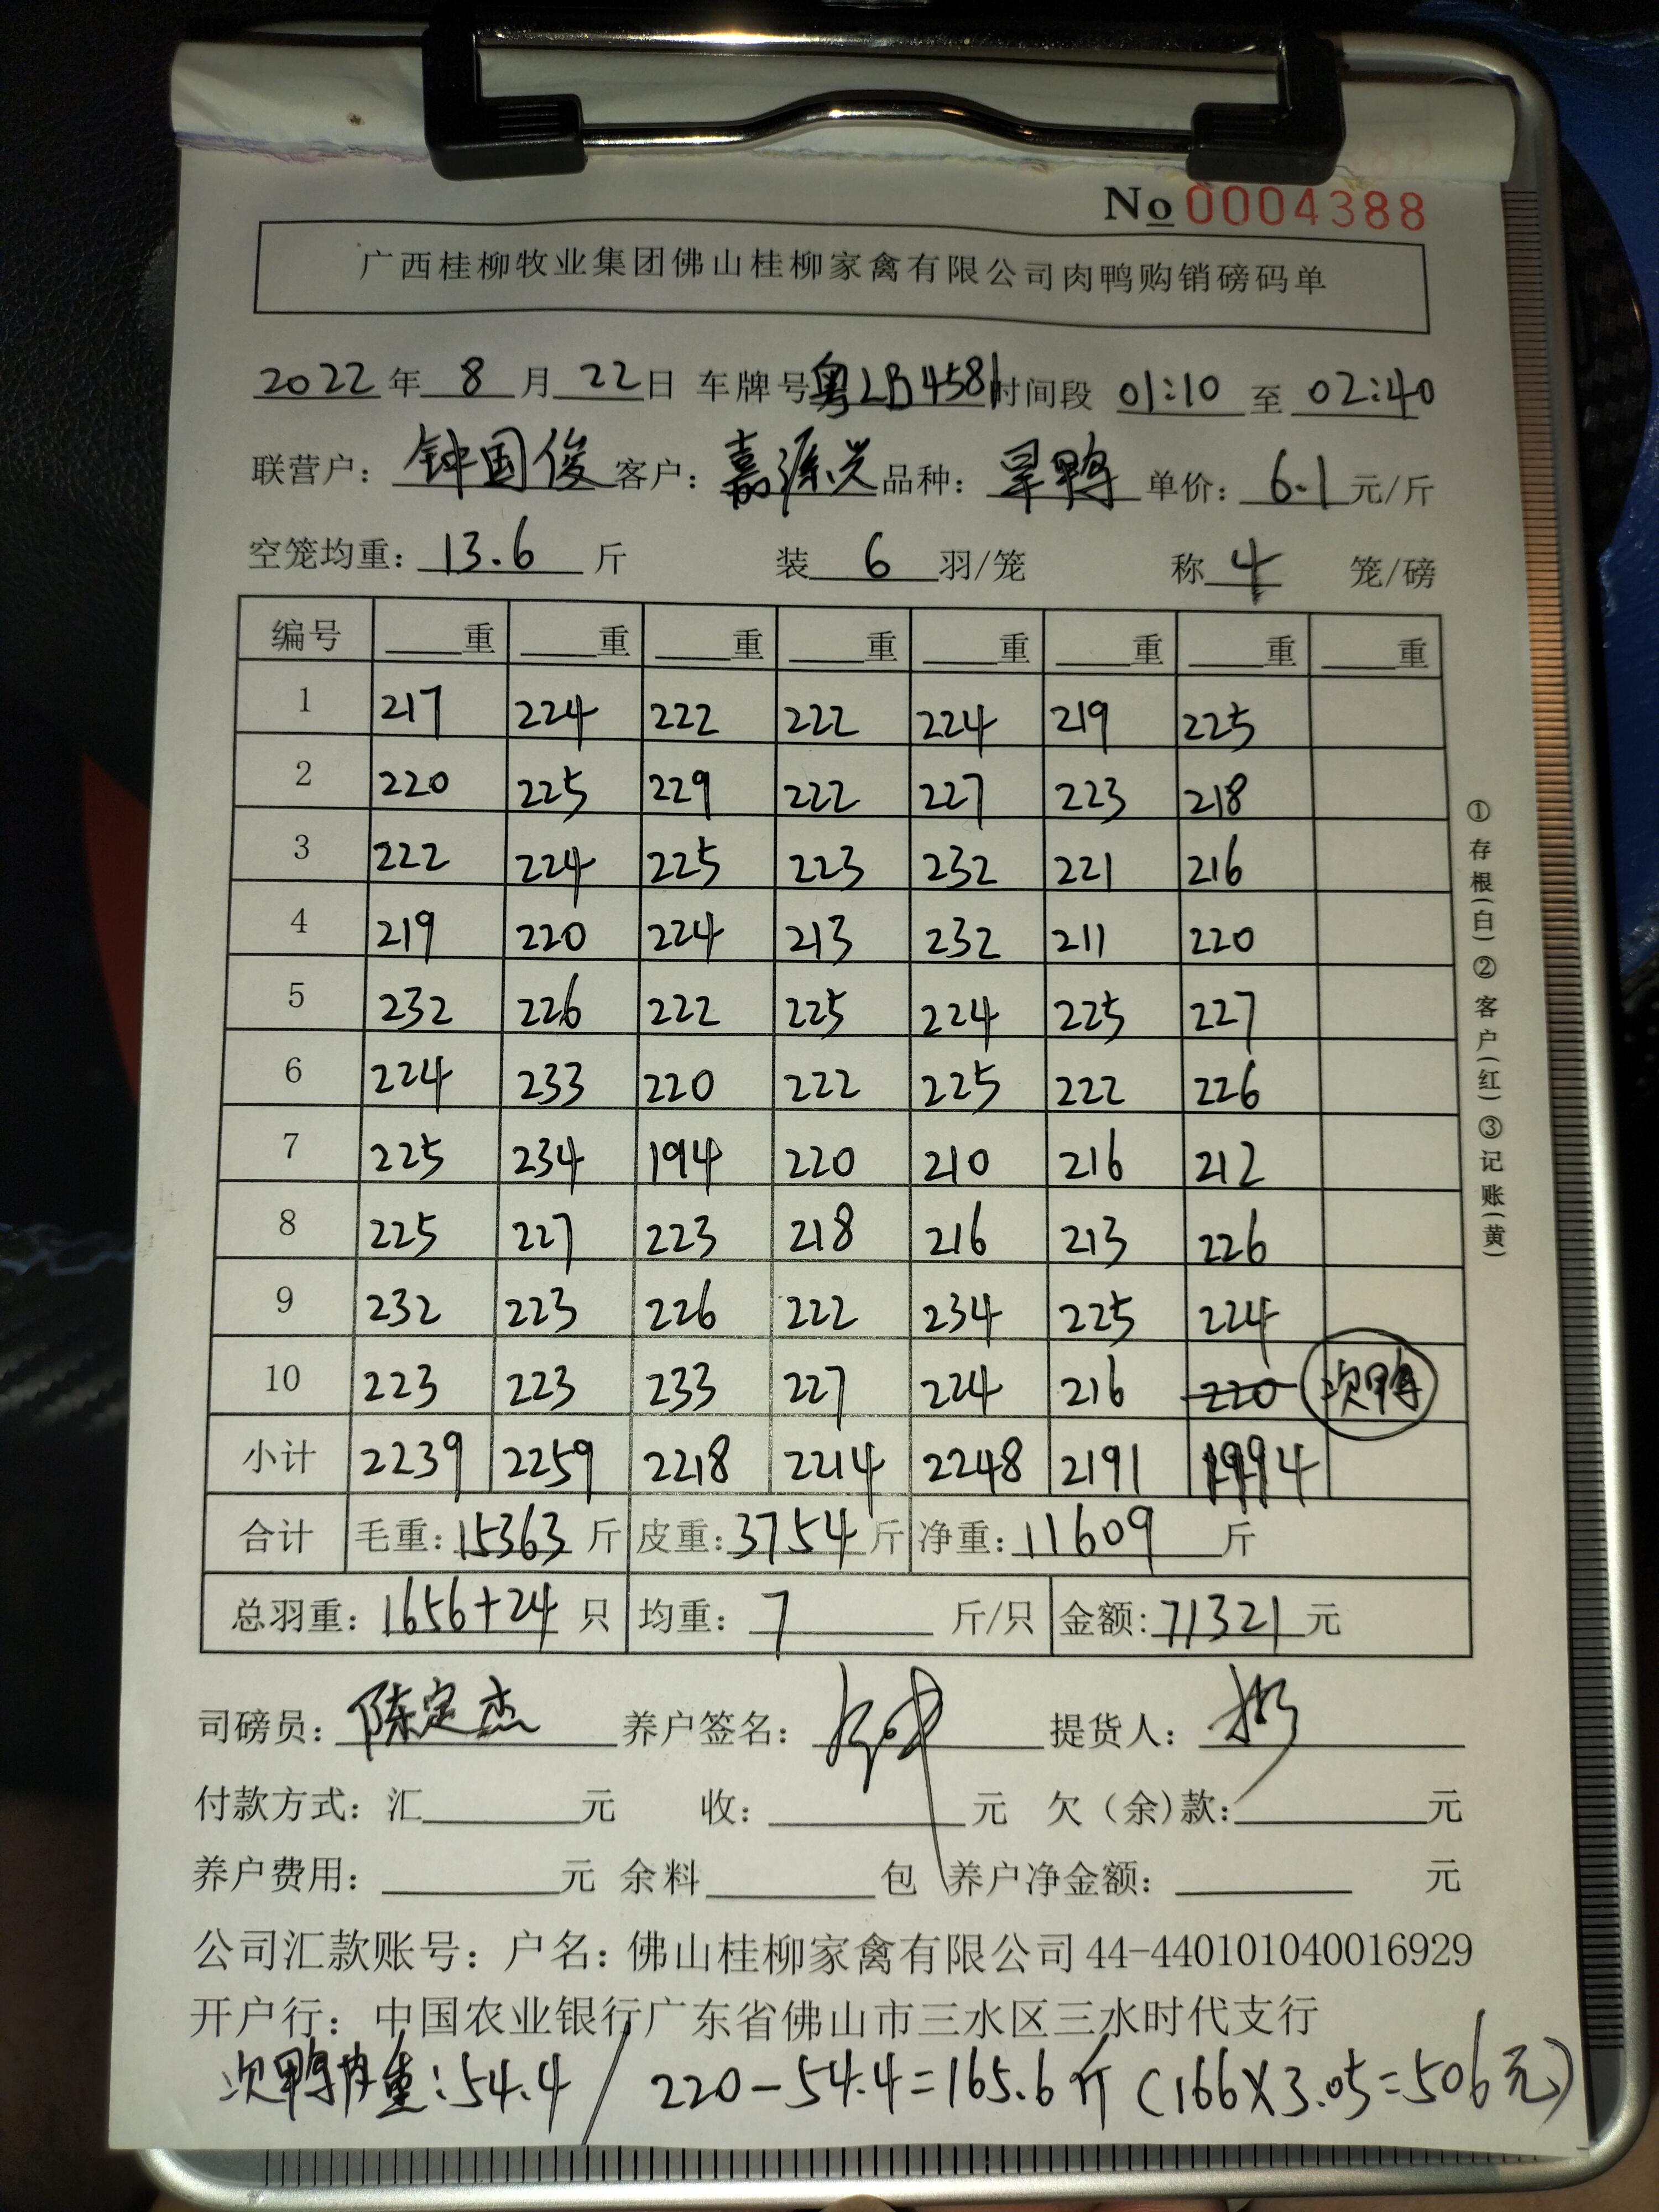 No 0004388
广西桂柳牧业集团佛山桂柳家禽有限公司肉鸭购销磅码单
2022年 8 月 22日 车牌号粤LB4581时间段 01:10 至 02:40
联营户：钟国俊 客户：嘉源兴 品种：旱鸭 单价：6.1元/斤
空笼均重：13.6 斤 装 6 羽/笼 称 4 笼/磅
编号 重 重 重 重 重 重 重 重
1 217 224 222 222 224 219 225
2 220 225 229 222 227 223 218
3 222 224 225 223 232 221 216
4 219 220 224 213 232 211 220
5 232 226 222 225 224 225 227
6 224 233 220 222 225 222 226
7 225 234 194 220 210 216 212
8 225 227 223 218 216 213 226
9 232 223 226 222 234 225 224
10 223 223 233 227 224 216 220 次鸭
小计 2239 2259 2218 2214 2248 2191 1994
合计 毛重：15363 斤 皮重：3754 斤 净重：11609 斤
总羽重：1656+24 只 均重：7 斤/只 金额：71321 元
司磅员：陈定杰 养户签名： 提货人：
付款方式：汇 元 收： 元 欠（余）款： 元
养户费用： 元 余料 包 养户净金额： 元
公司汇款账号：户名：佛山桂柳家禽有限公司 44-440101040016929
开户行：中国农业银行广东省佛山市三水区三水时代支行
次鸭 重：54.4 / 220-54.4=165.6斤（166×3.05=506元）
①存根（白）②客户（红）③记账（黄）